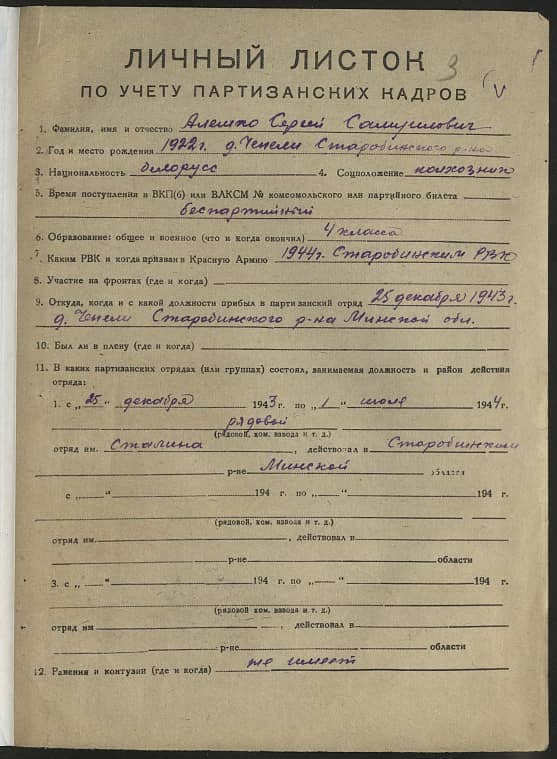 ЛИЧНЫЙ ЛИСТОК 3
ПО УЧЕТУ ПАРТИЗАНСКИХ КАДРОВ
1. Фамилия, имя и отчество Алешко Сергей Самуилович
2. Год и место рождения 1922г. д. Чепели Старобинского р-на
3. Национальность белорусс 4. Соцположение колхозник
5. Время поступления в ВКП(б) или ВЛКСМ № комсомольского или партийного билета
беспартийный
6. Образование: общее и военное (что и когда окончил) 4 класса
7. Каким РВК и когда призван в Красную Армию 1944г. Старобинским РВК
8. Участие на фронтах (где и когда)
9. Откуда, когда и с какой должности прибыл в партизанский отряд 25 декабря 1943г.
д. Чепели Старобинского р-на Минской обл.
10. Был ли в плену (где и когда)
11. В каких партизанских отрядах (или группах) состоял, занимаемая должность и район действия
отряда:
1. с „25“ декабря 1943 г. по „1“ июля 1944 г.
рядовой
(рядовой, ком. взвода и т. д.)
отряд им. Сталина, действовал в Старобинском
р-не Минской области
с „—“ 194 г. по „—“ 194 г.
(рядовой, ком. взвода и т. д.)
отряд им. , действовал в
р-не области
3. с „—“ 194 г. по „—“ 194 г.
(рядовой ком. взвода и т. д.)
отряд им , действовал в
р-не области
12. Ранения и контузии (где и когда) не имеет